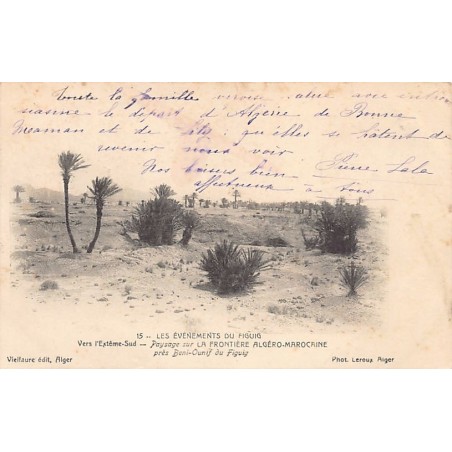 Toute la famille réunie salue avec enthou
siasme le départ d'Algérie de Bonne
Maman et de Titi qu'elles se hâtent de
revenir nous voir
Nos baisers bien Pierre Lala
affectueux à tous
15 -- LES ÉVÉNEMENTS DU FIGUIG
Vers l'Extême-Sud — Paysage sur LA FRONTIÈRE ALGÉRO-MAROCAINE
près Beni-Ounif du Figuig
Vielfaure édit, Alger
Phot. Leroux Alger